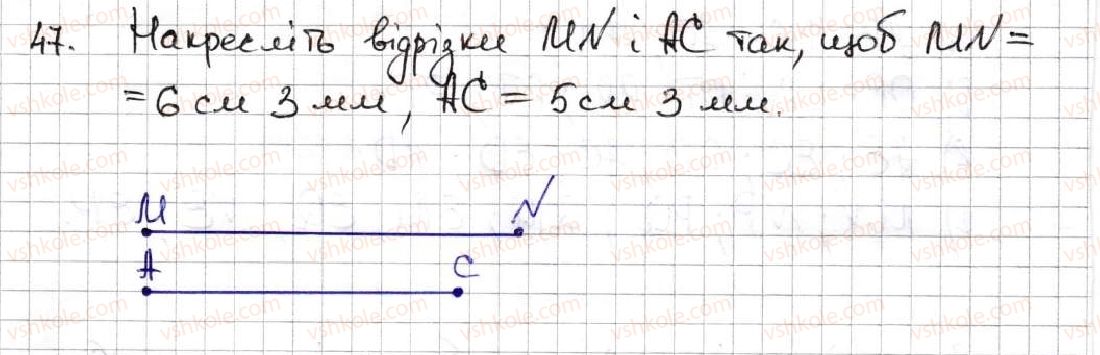 47. Накресліть відрізки MN і AC так, щоб MN =
= 6 см 3 мм, AC = 5 см 3 мм.
M N
A C